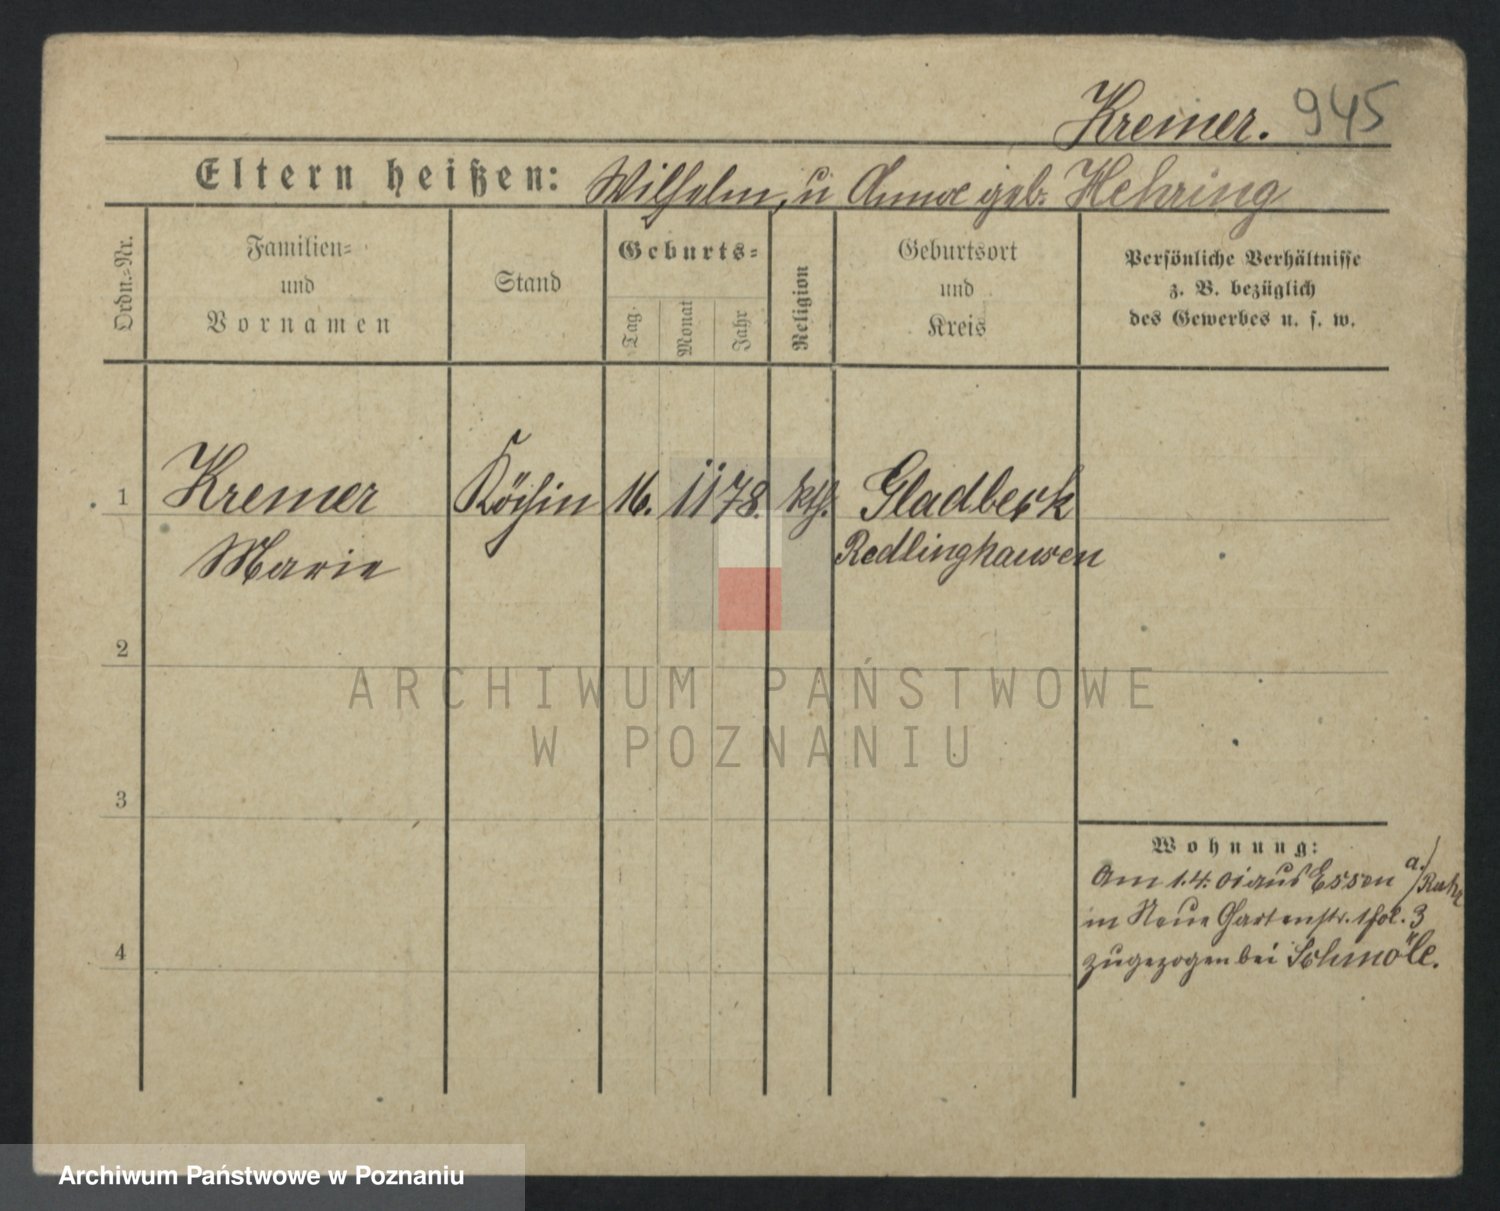 Kremer. 945
Eltern heißen: Wilhelm, u Anna geb. Hehring
Ordn.=Nr.
Familien=
und
Vornamen
Stand
Geburts=
Tag.
Monat
Jahr
Religion
Geburtsort
und
Kreis
Persönliche Verhältnisse
z. B. bezüglich
des Gewerbes u. s. w.
1 Kremer Köchin 16. 11 78. kth. Gladbeck
Marie Recklinghausen
2
3
4
Wohnung:
Am 1.4.01 aus Essen a./Ruhr
in Neue Gartenstr. 3
zugezogen bei Schmöle.
ARCHIWUM PAŃSTWOWE
W POZNANIU
Archiwum Państwowe w Poznaniu